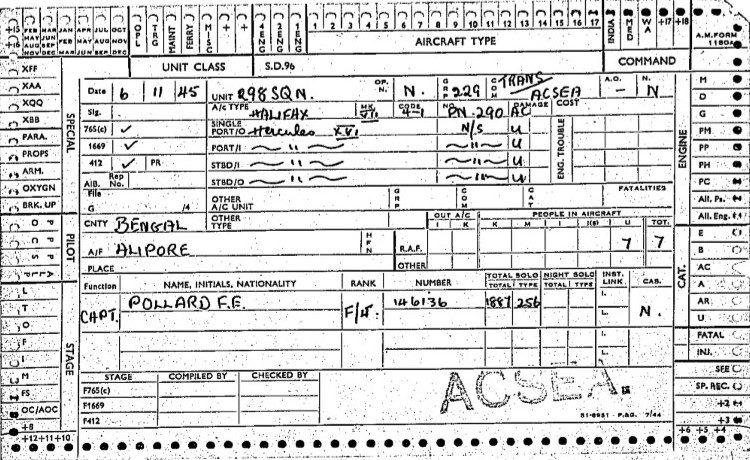 +15 FEB MAR JAN APR JUL OCT
+16 MAY JUN FEB MAY AUG NOV
AUG SEP MAR JUN SEP DEC
NOV DEC
POL TRG MAINT FERRY MISG + + 4 ENG 2 ENG 1 ENG 1 2 3 4 5 6 7 8 9 10 11 12 13 14 15 16 17 INDIA MED WA +17 +18
AIRCRAFT TYPE
A.M. FORM 1180A
UNIT CLASS S.D.96 COMMAND
XFF
XAA
XQQ
XBB
PARA.
PROPS
ARM.
OXYGN
BRK. UP
SPECIAL
Date 6 11 45 UNIT 298 SQN. OP. N. N. GRP 229 COM TRANS ACSEA A.O. - N. N
Sig. A/C TYPE HALIFAX MK. VII CODE 4-1 NO. PN.290 DAMAGE AC COST
765(c) ✓ SINGLE PORT/O Hercules XVI N/S U
1669 ✓ PORT/I " " U
412 ✓ PR STBD/I " " U
AIB. Rep No. STBD/O " " U
ENG. TROUBLE
File G /4 OTHER A/C UNIT GRP COM CAT FATALITIES
CNTY BENGAL OTHER TYPE OUT A/C I K PEOPLE IN AIRCRAFT K M I I(S) U TOT.
A/F ALIPORE HFN R.A.F. 7 7
PLACE OTHER
Function NAME, INITIALS, NATIONALITY RANK NUMBER TOTAL SOLO TOTAL TYPE NIGHT SOLO TOTAL TYPE INST. LINK CAS.
CAPT. POLLARD F.E. F/Lt. 146136 1887 256 I. L. N.
I.
L.
STAGE COMPILED BY CHECKED BY
F765(c)
F1669
F412
ACSEA
51-6951 - P.&G. 7/44
PILOT
L
T
O
F
I
M
FS
OC/AOC
+8
+12+11+10
STAGE
ENGINE
M
D
G
PM
PP
PH
PC
All. Ps.
All. Eng.
CAT.
E
B
AC
A
AR
U
FATAL
INJ.
SEE
SP. REC.
+2
+3
+6 +5 +4